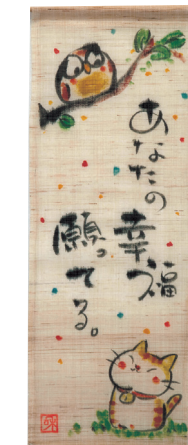 あなたの
幸福
願ってる。